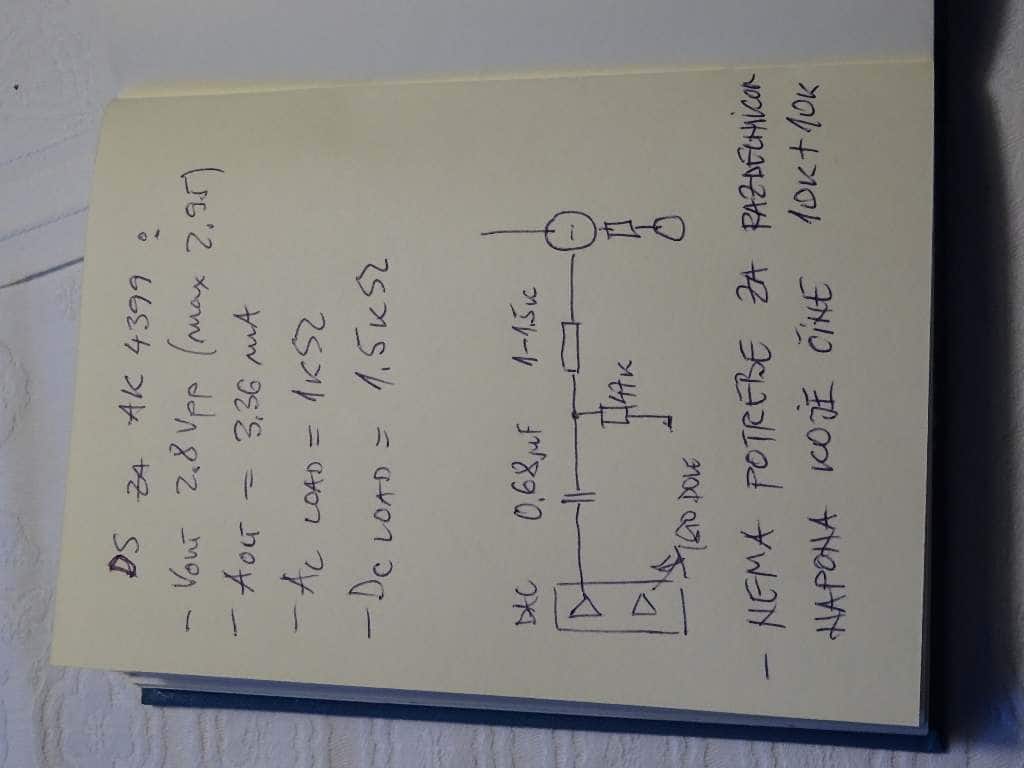 DS ZA AK 4399 :
- Vout 2.8 Vpp (max 2.95)
- AOUT = 3.36 mA
- AC LOAD = 1kΩ
- DC LOAD = 1.5kΩ
DAC 0.68μF 1-1.5K
47K
ISTO DOLE
- NEMA POTREBE ZA RAZDELNICOM
NAPONA KOJE ČINE 10K+10K